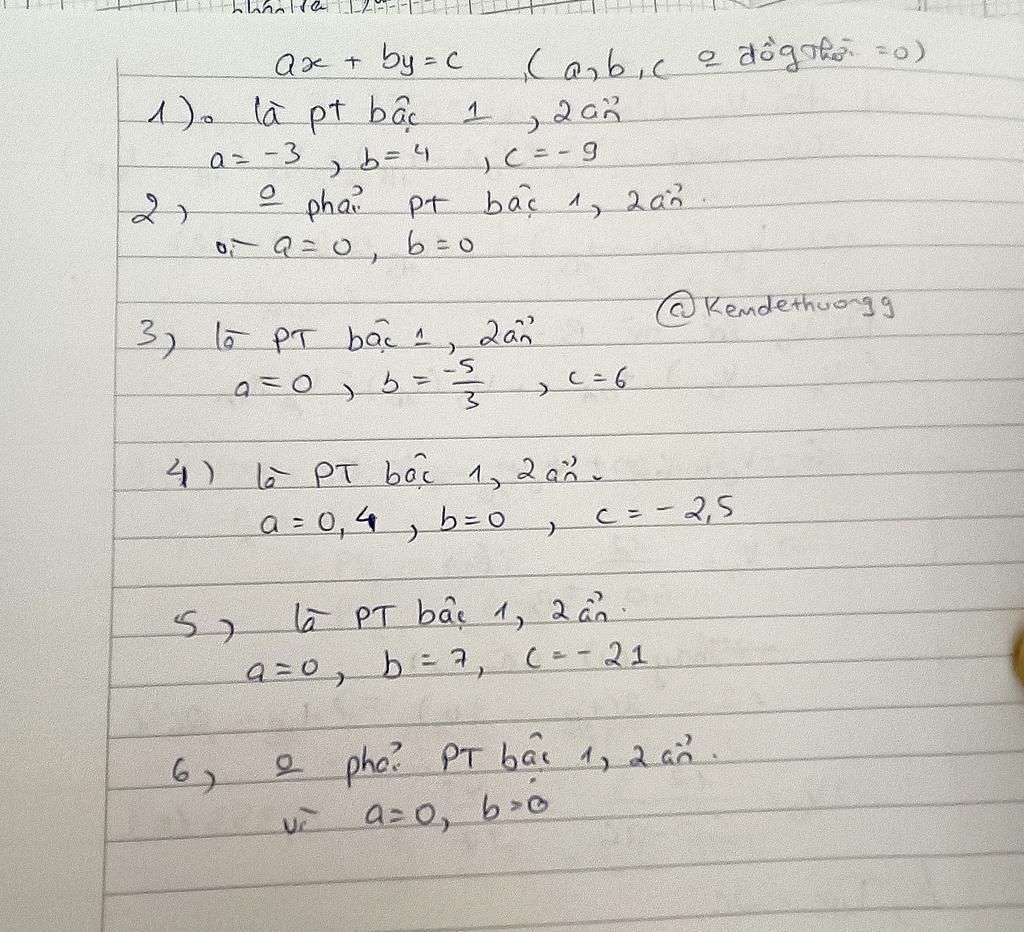 ax + by = c (a, b, c o đồg thời =0)
1). là pt bậc 1, 2 ẩn
a = -3, b = 4, c = -9
2, o phải pt bậc 1, 2 ẩn.
vì a = 0, b = 0
@Kemdethuongg
3, là PT bậc 1, 2 ẩn
a = 0, b = -5/3, c = 6
4) là PT bậc 1, 2 ẩn.
a = 0,4, b = 0, c = -2,5
5, là PT bậc 1, 2 ẩn.
a = 0, b = 7, c = -21
6, o phải PT bậc 1, 2 ẩn.
vì a = 0, b = 0